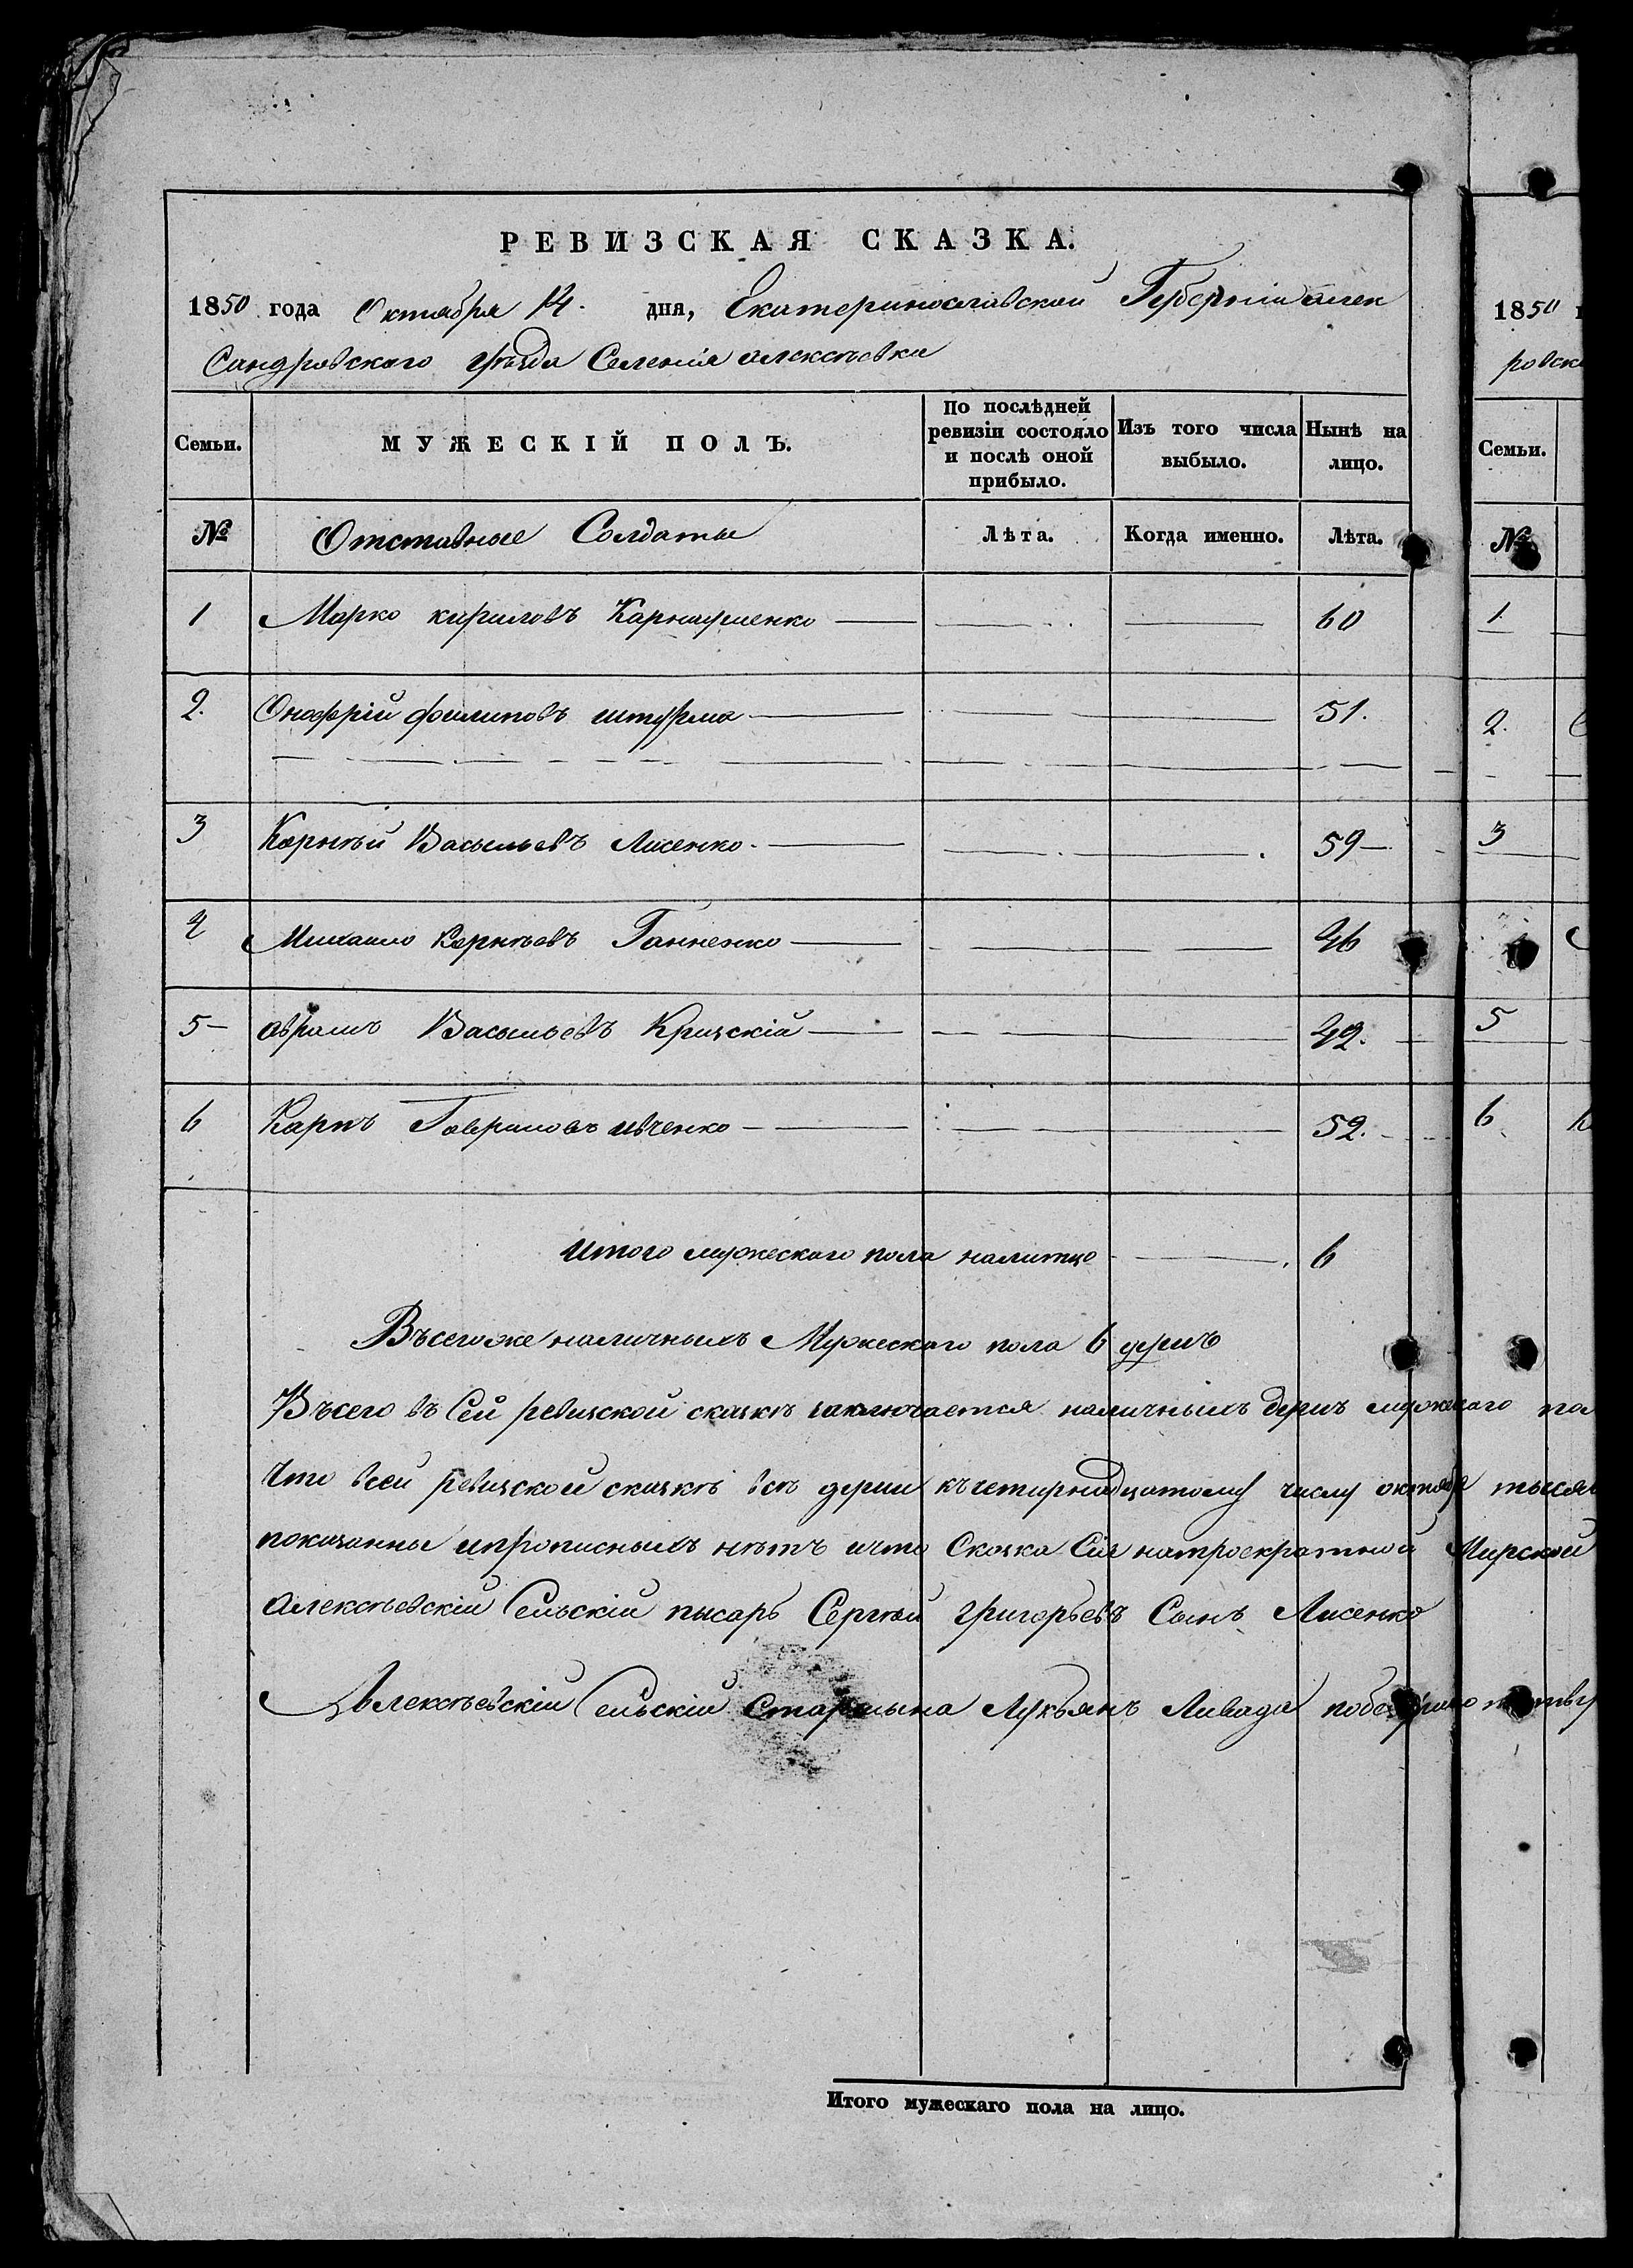 РЕВИЗСКАЯ СКАЗКА.
1850 года Октября 14. дня, Екатеринославской Губерніи алек
Сандровскаго уѣзда Селенія алексѣевки
Семьи. МУЖЕСКІЙ ПОЛЪ. По послѣдней ревизіи состояло и послѣ оной прибыло. Изъ того числа выбыло. Нынѣ на лицо.
№ Отставные Солдаты Лѣта. Когда именно. Лѣта.
1 Марко кириловъ Карнаушенко 60
2. Онофрій филиповъ штурма 51.
3 Корнѣй Васильевъ Лисенко 59
4 Михаило Корнѣевъ Ганненко 46
5 аврамъ Васильевъ Кризскій 42.
6 Карпъ Гавриловъ ивченко 52.
итого мужескаго пола налитцо 6
Въсегоже наличныхъ Мужескаго пола 6 душъ
Въсего въ Сей ревизской сказкѣ заключается наличныхъ душъ мужескаго по
Что всей ревизской сказкѣ всѣ души къчетирнадцатому числу октября тысяч
показанны ипрописныхъ нѣтъ ичто Сказка Сія натроекратной Мирской
Алексѣевскій Сельскій писарь Сергѣй григорьевъ Сынъ Лисенко
Алексѣевскій Сельскій Старшына Лукьянъ Ливада
Итого мужескаго пола на лицо.
1850
ровск
Семьи.
№
1.
2.
3
5
6